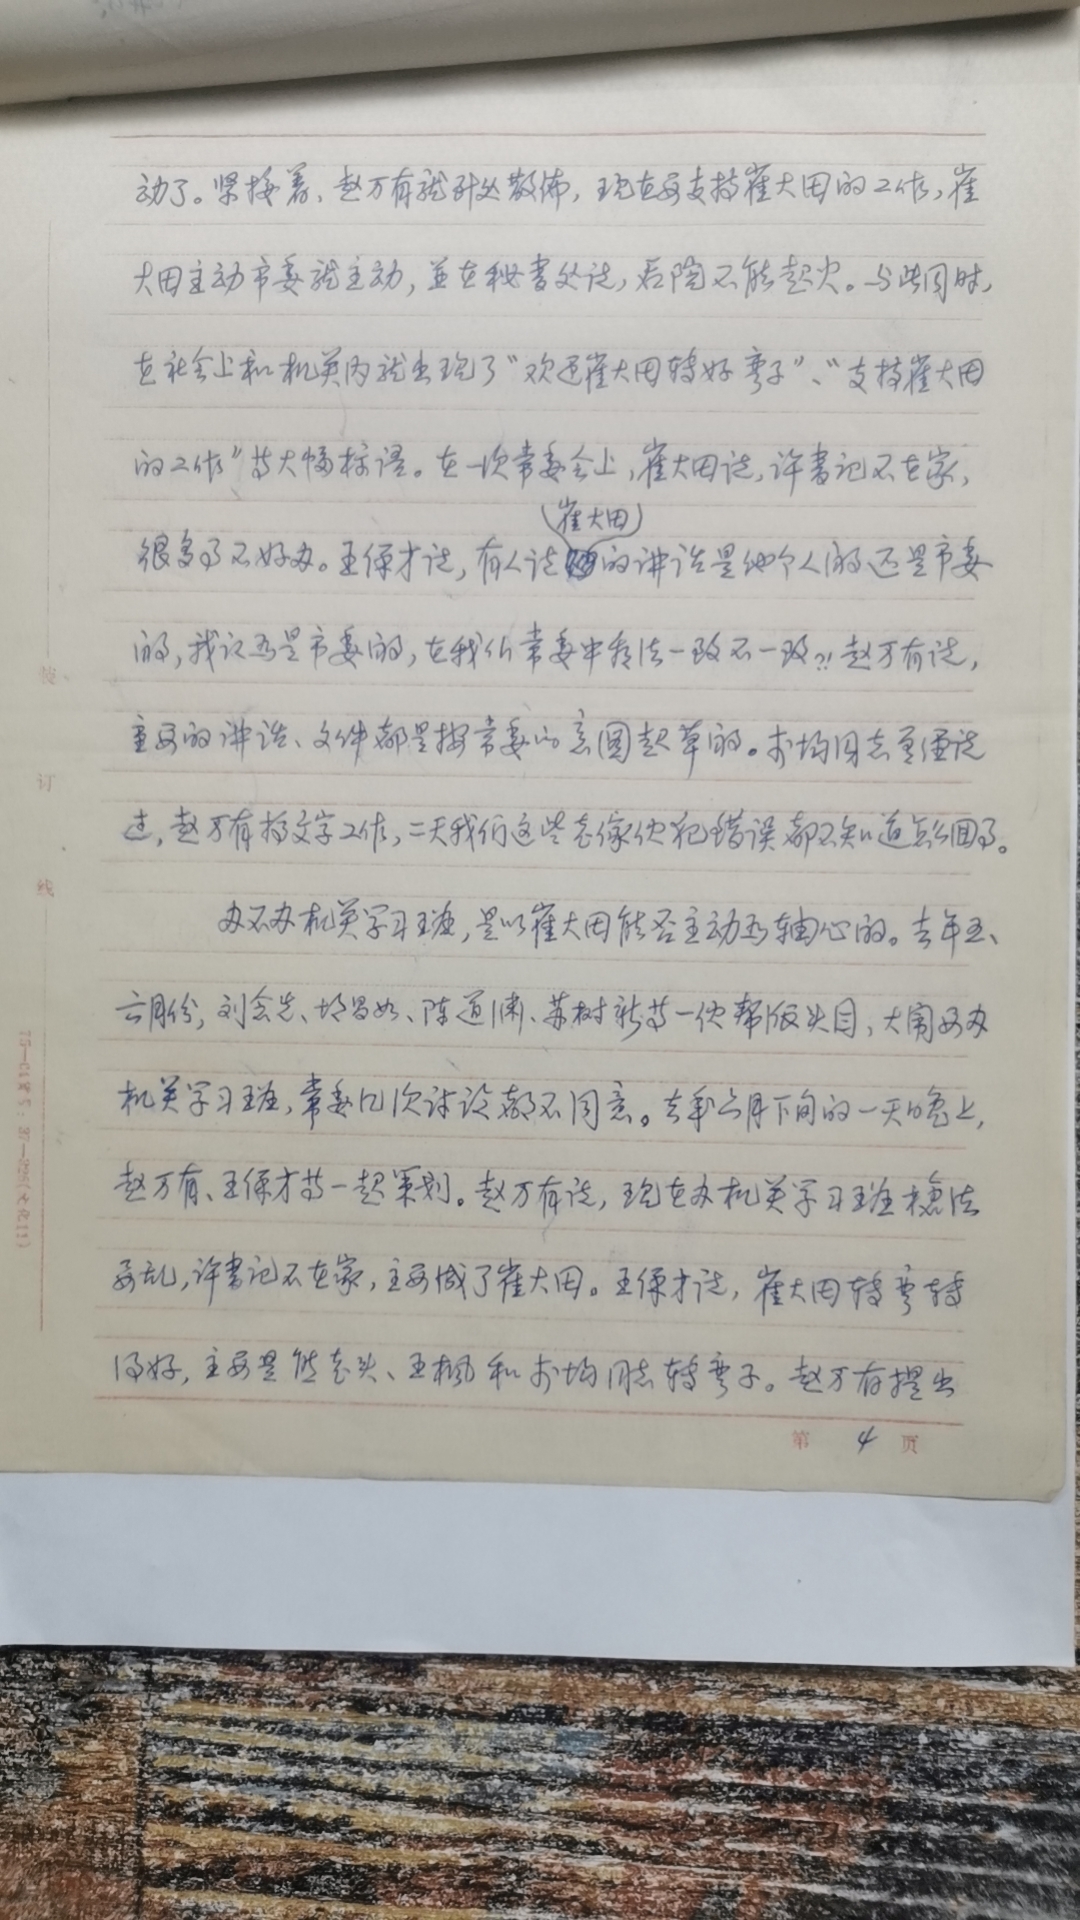 动了。紧接着、赵万有就到处散佈，现在要支持崔大田的工作，崔
大田主动市委就主动，並在秘书处说，后院不能起火。与此同时，
在社会上和机关内就出现了“欢迎崔大田转好弯子”、“支持崔大田
的工作”等大幅标语。在一次常委会上，崔大田说，许书记不在家，
很多事不好办。王保才说，有人说(崔大田)的讲话是他个人的还是市委
的，我认为是市委的，在我们常委中看法一致不一致?!赵万有说，
主要的讲话、文件都是按常委的意图起草的。均同志曾经说
过，赵万有搞文字工作，二天我们这些老傢伙犯错误都不知道怎么回事。
办不办机关学习班，是以崔大田能否主动为轴心的。去年五、
六月份，刘会先、胡昌如、陈道、苏树新等一伙帮派头目，大闹要办
机关学习班，常委几次讨论都不同意。去年六月下旬的一天晚上，
赵万有、王保才等一起策划。赵万有说，现在办机关学习班想法
要乱，许书记不在家，主要减了崔大田。王保才说，崔大田转弯转
得好，主要是熊老头、王枫和均同志转弯子。赵万有提出
第 4 页
装
订
线